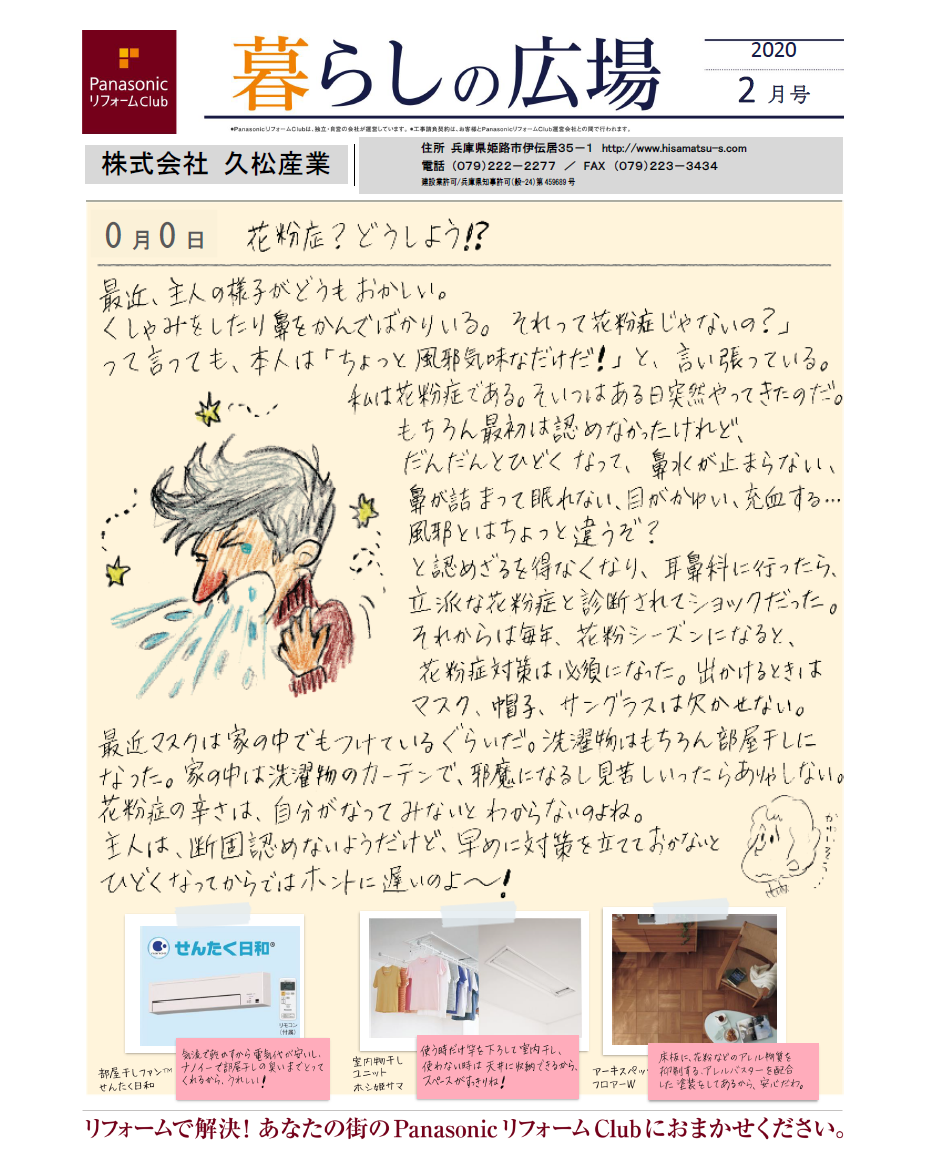 Panasonic
リフォームClub
暮らしの広場
2020
2月号
●PanasonicリフォームClubは、独立・自営の会社が運営しています。●工事請負契約は、お客様とPanasonicリフォームClub運営会社との間で行われます。
株式会社 久松産業
住所 兵庫県姫路市伊伝居35−1 http://www.hisamatsu-s.com
電話 (079)222−2277 ／ FAX (079)223−3434
建設業許可/兵庫県知事許可(般-24)第459689号
0月0日
花粉症?どうしよう!?
最近、主人の様子がどうもおかしい。
くしゃみをしたり鼻をかんでばかりいる。それって花粉症じゃないの?」
って言っても、本人は「ちょっと風邪気味なだけだ!」と、言い張っている。
私は花粉症である。そいつはある日突然やってきたのだ。
もちろん最初は認めなかったけれど、
だんだんとひどくなって、鼻水が止まらない、
鼻が詰まって眠れない、目がかゆい、充血する…
風邪とはちょっと違うぞ?
と認めざるを得なくなり、耳鼻科に行ったら、
立派な花粉症と診断されてショックだった。
それからは毎年、花粉シーズンになると、
花粉症対策は必須になった。出かけるときは
マスク、帽子、サングラスは欠かせない。
最近マスクは家の中でもつけているぐらいだ。洗濯物はもちろん部屋干しに
なった。家の中は洗濯物のカーテンで、邪魔になるし見苦しいったらありゃしない。
花粉症の辛さは、自分がなってみないとわからないのよね。
主人は、断固認めないようだけど、早めに対策を立てておかないと
ひどくなってからではホントに遅いのよ〜!
せんたく日和®
リモコン
(付属)
部屋干しファン™
せんたく日和
気流で乾かすから電気代が安いし、
ナノイーで部屋干しの臭いまでとって
くれるから、うれしい!
室内物干し
ユニット
ホシ姫サマ
使う時だけ竿を下ろして室内干し、
使わない時は天井に収納できるから、
スペースがすっきりね!
アーキスペッ
フロアーW
床板に、花粉などのアレル物質を
抑制する、アレルバスターを配合
した塗装をしてあるから、安心だわ。
リフォームで解決！あなたの街のPanasonicリフォームClubにおまかせください。